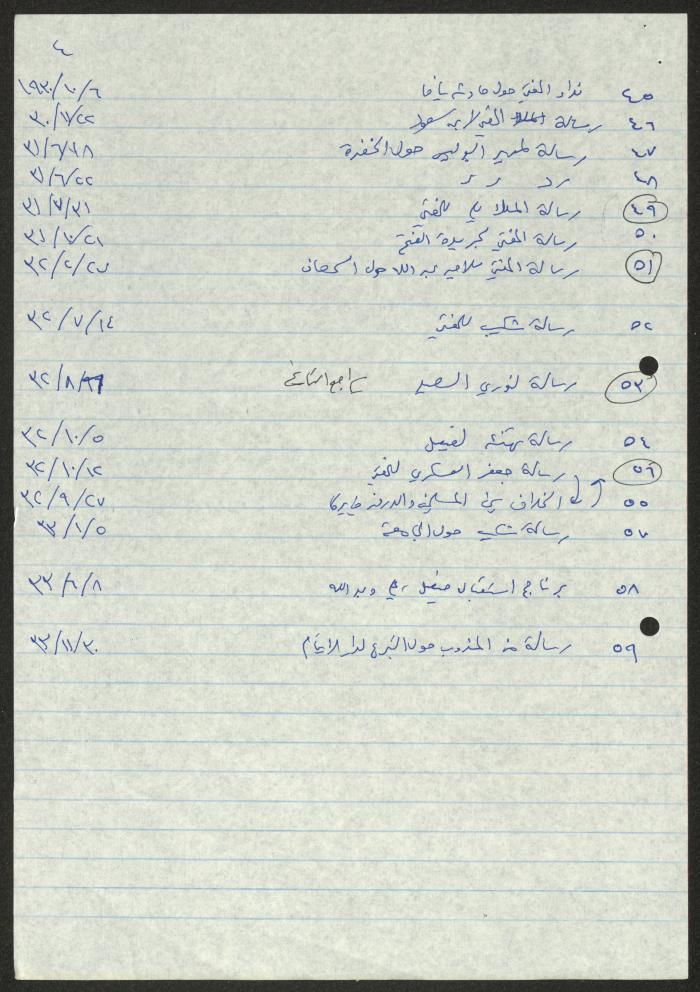 ٤
٤٥ نداء المفتي حول حادثة يافا ١٩٣٠/١٠/٦
٤٦ رسالة المفتي لابن سعود ٣٠/١١/٢٢
٤٧ رسالة لمدير البوليس حول الخفرة ٣١/٦/١٨
٤٨ رد ٣١/٦/٢٢
٤٩ رسالة الملك علي للمفتي ٣١/٧/٣١
٥٠ رسالة المفتي لجريدة الفتح ٣١/١٠/٢١
٥١ رسالة المفتي للامير عبد الله حول ٣٢/٢/٢٧
٥٢ رسالة شكيب للمفتي ٣٢/٧/١٤
٥٣ رسالة لنوري السعيد راجع التاريخ ٣٢/٨/
٥٤ رسالة تهنئة لفيصل ٣٢/١٠/٥
٥٦ رسالة جعفر العسكري للمفتي ٣٢/١٠/١٢
٥٥ الخلاف بين المسلمين والدروز ٣٢/٩/٢٧
٥٧ رسالة شكيب حول الجامعة ٣٣/١/٥
٥٨ برنامج استقبال فيصل وعبدالله ٣٣/٦/٨
٥٩ رسالة من المندوب حول التبرع لدار الايتام ٣٣/١١/٣٠